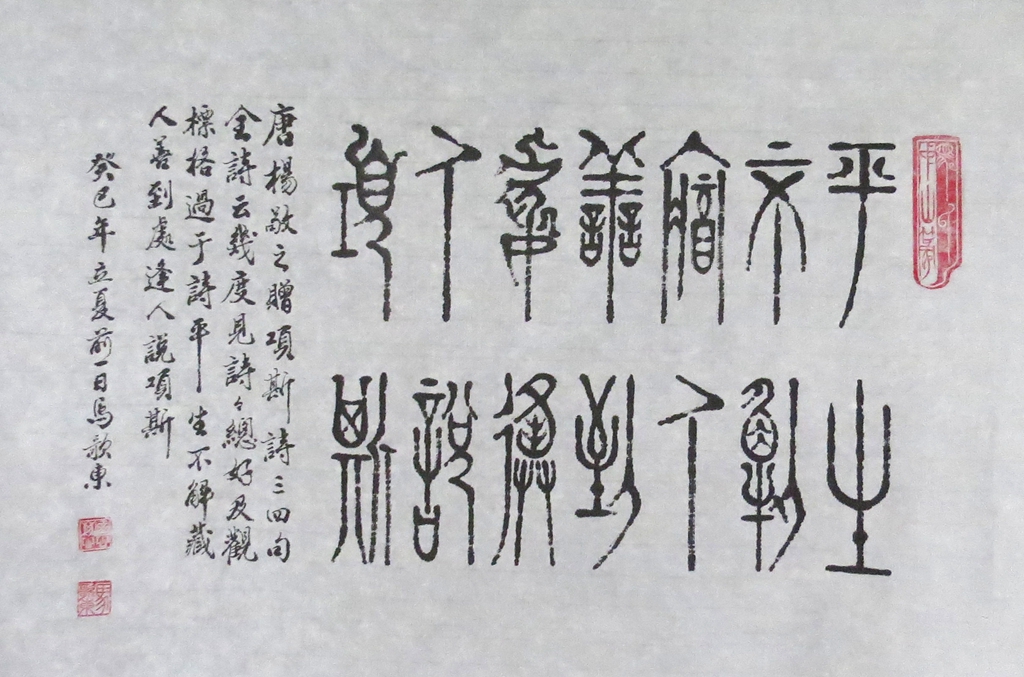 平生
不解
藏人
善到
處逢
人說
項斯
唐楊敬之贈項斯詩三四句
全詩云幾度見詩々總好及觀
標格過于詩平生不解藏
人善到處逢人說項斯
癸巳年立夏前一日馬歌東